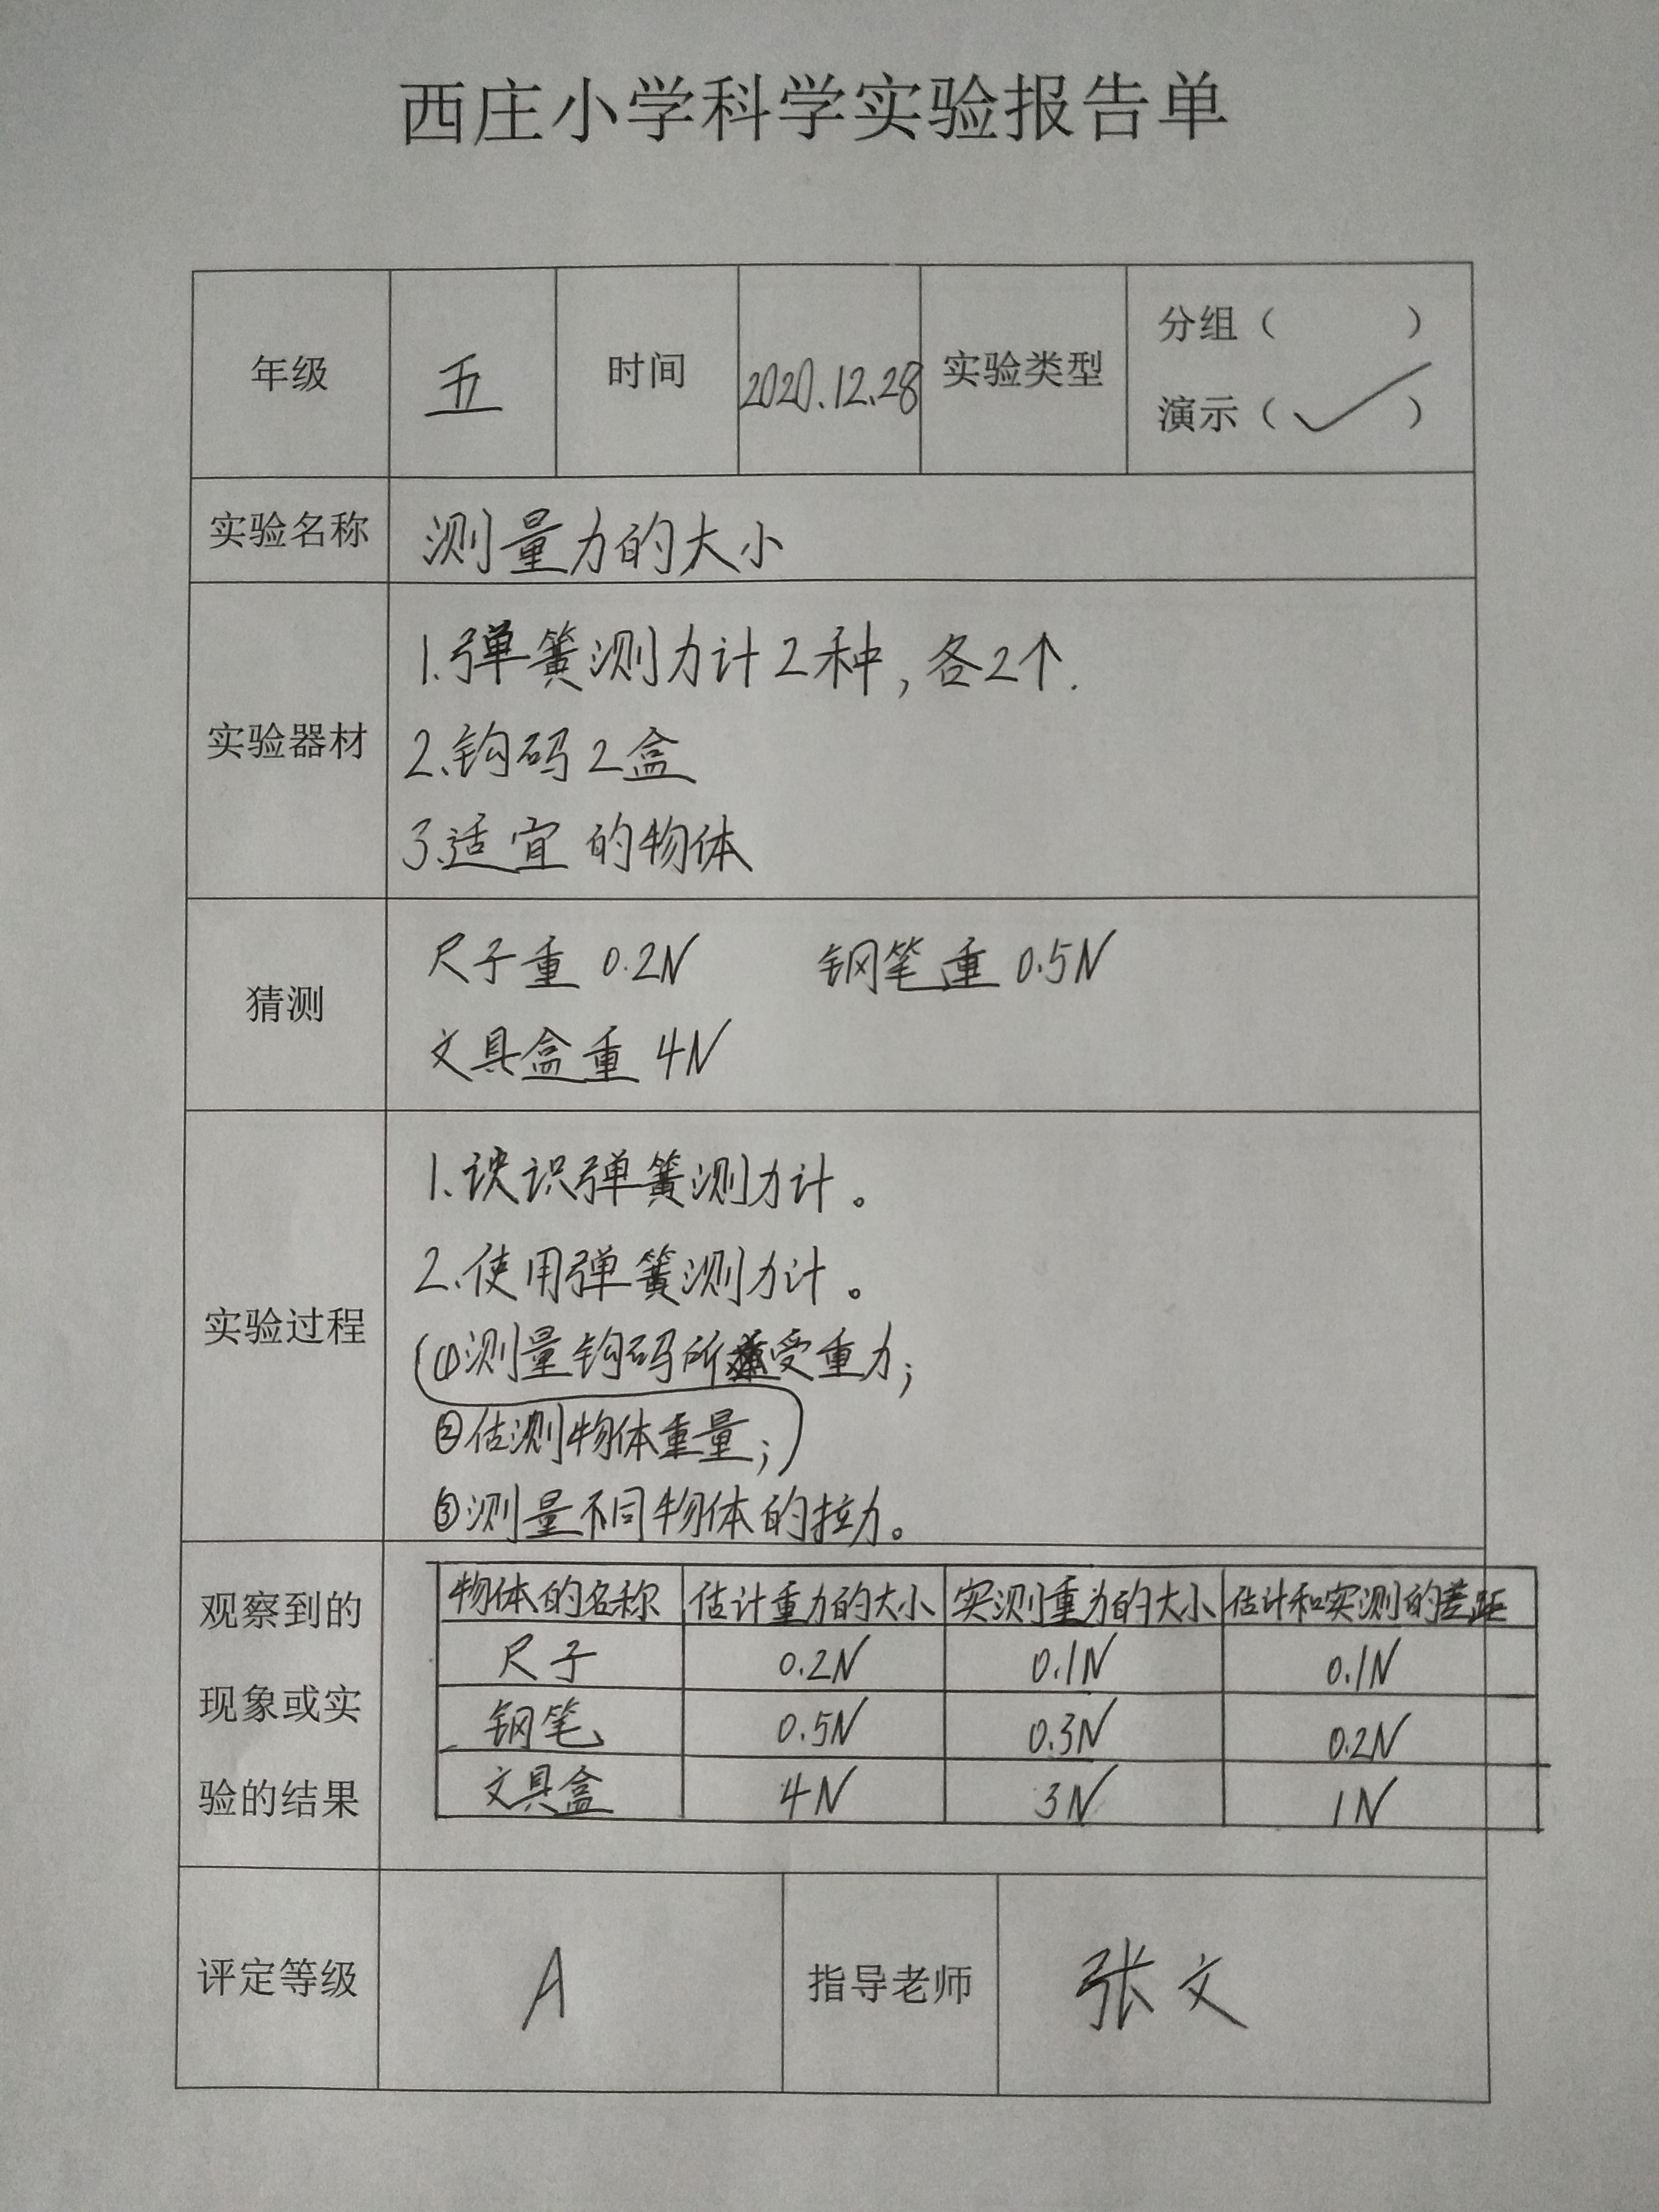 西庄小学科学实验报告单
年级 五 时间 2020.12.28 实验类型 分组（ ）
演示（✓）
实验名称 测量力的大小
实验器材 1.弹簧测力计2种,各2个.
2.钩码2盒
3.适宜的物体
猜测 尺子重 0.2N 钢笔重 0.5N
文具盒重 4N
实验过程 1.认识弹簧测力计。
2.使用弹簧测力计。
①测量钩码所受重力;
②估测物体重量;
③测量不同物体的拉力。
观察到的
现象或实
验的结果
物体的名称 估计重力的大小 实测重力的大小 估计和实测的差距
尺子 0.2N 0.1N 0.1N
钢笔 0.5N 0.3N 0.2N
文具盒 4N 3N 1N
评定等级 A 指导老师 张文